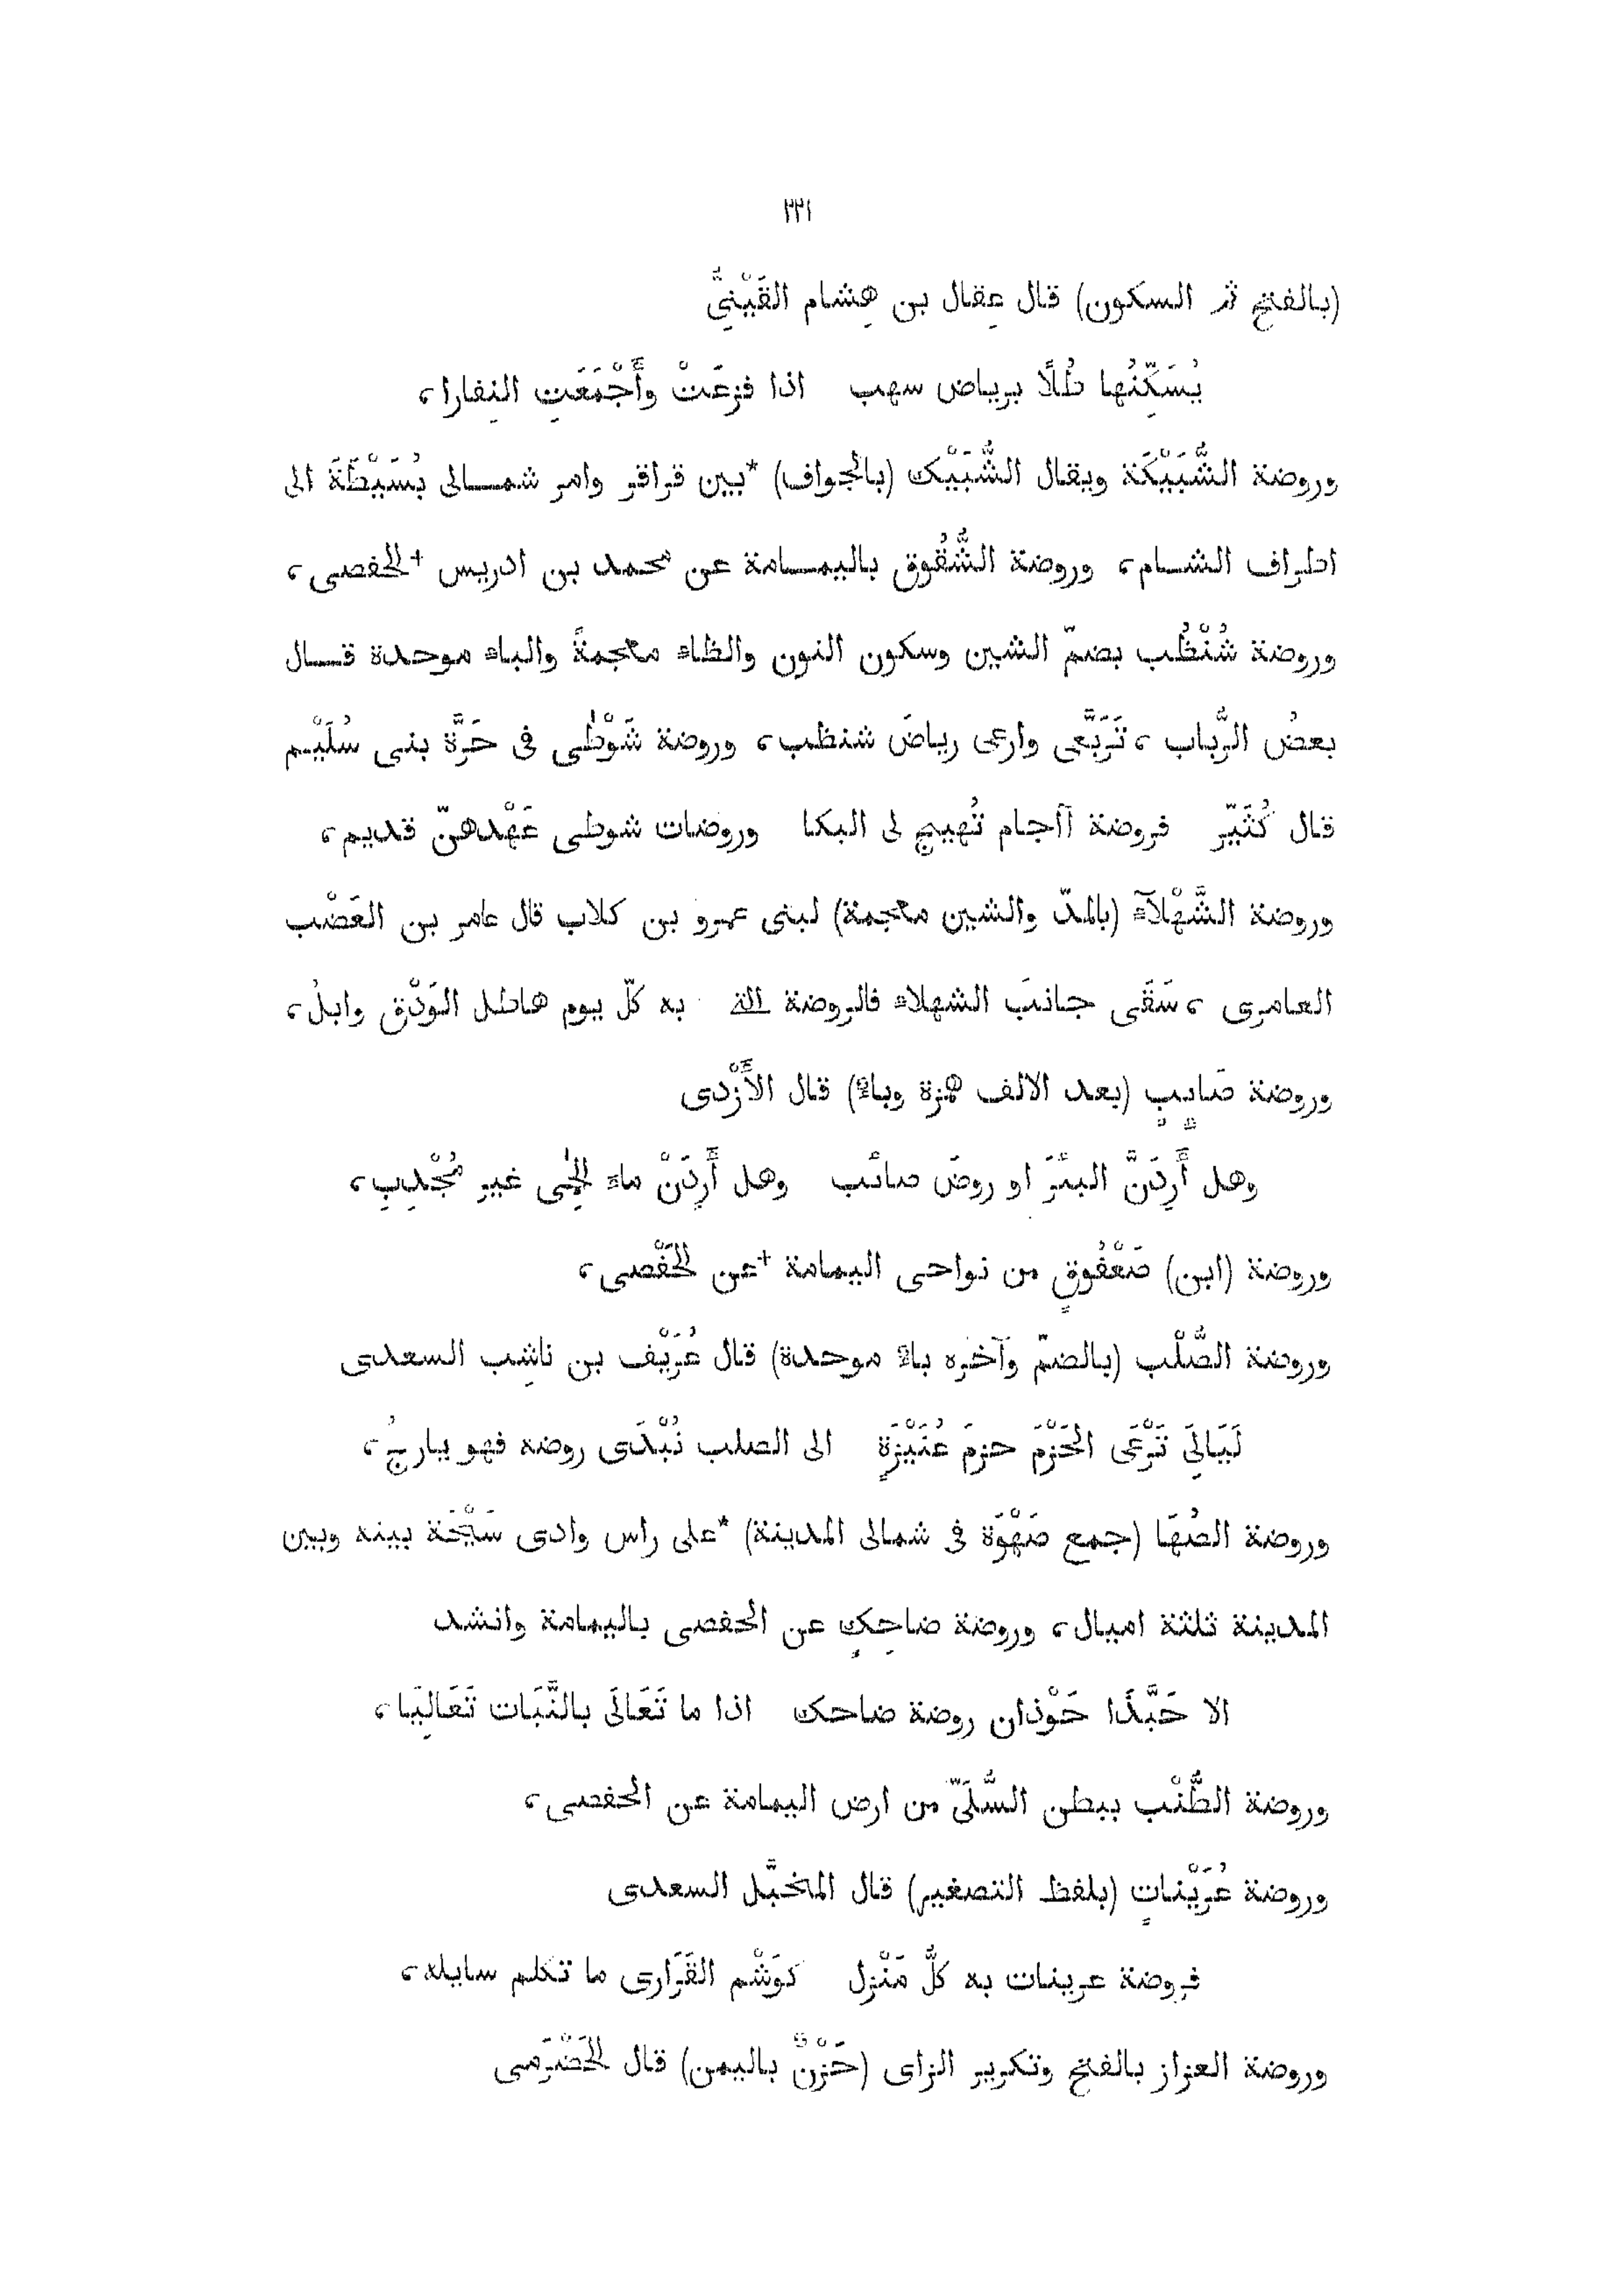 ٢٢١
(بالفتح ثر السكون) قال عِقال بن هِشام القَيْنىّ
يُسَكِّنُها طُلًا برياض سهب اذا فزعَتْ وأَجْمَعَتِ النِفارا،
وروضة الشُّبَيْكَة ويقال الشُّبَيْك (بالجواف) *بين قراقر وامر شمالى بُسَيْطَةَ الى
اطراف الشام، وروضة الشُّقُوق باليمامة عن محمد بن ادريس +الحفصى،
وروضة شُنْظُب بضمّ الشين وسكون النون والظاء معجمةً والباء موحدة قال
بعضُ الرِّباب، تَرَبَّعى وارعى رياضَ شنظب، وروضة شَوْطَى فى حَرَّة بنى سُلَيْم
قال كُثَيّر فروضة آاجام تُهيج لى البكا وروضات شوطى عَهْدهنّ قديم،
وروضة الشَّهْلآء (بالمدّ والشين معجمة) لبنى عمرو بن كلاب قال عامر بن العَضْب
العامرى، سَقَى جانبَ الشهلاء فالروضة الله به كلّ يوم هاطل الوَدْق وابلُ،
وروضة صَايبٍ (بعد الالف همزة وباء) قال الأَزْدى
وهل أَرِدَنَّ البئرَ او روضَ صائب وهل أَرِدَنْ ماء الحِمَى غير مُجْدِبِ،
وروضة (ابن) صَعْفُوقٍ من نواحى اليمامة +عن الحَفْصى،
وروضة الصُّلْب (بالضمّ وآخره باء موحدة) قال عُرَيْف بن ناشِب السعدى
لَيَالِىَ تَرْعَى الحَزْمَ حزمَ عُنَيْزَةٍ الى الصلب نُبْدَى روضه فهو يارجُ،
وروضة الصُهَا (جمع صَهْوَة فى شمالى المدينة) *على راس وادى سَيْحَة بينه وبين
المدينة ثلثة اميال، وروضة ضاحِكٍ عن الحفصى باليمامة وانشد
الا حَبَّذَا حَوْذان روضة ضاحك اذا ما تَعَالَى بالنَّبَات تَعَالِيَا،
وروضة الطُّنْب ببطن السُّلَىّ من ارض اليمامة عن الحفصى،
وروضة عُرَيْنَاتٍ (بلفظ التصغير) قال المخبَّل السعدى
فروضة عرينات به كلُّ مَنْزِل كوَشْم القَرَارى ما تكلم سايله،
وروضة العزاز بالفتح وتكرير الزاى (حَزْنٌ باليمن) قال الحَضْرَمى